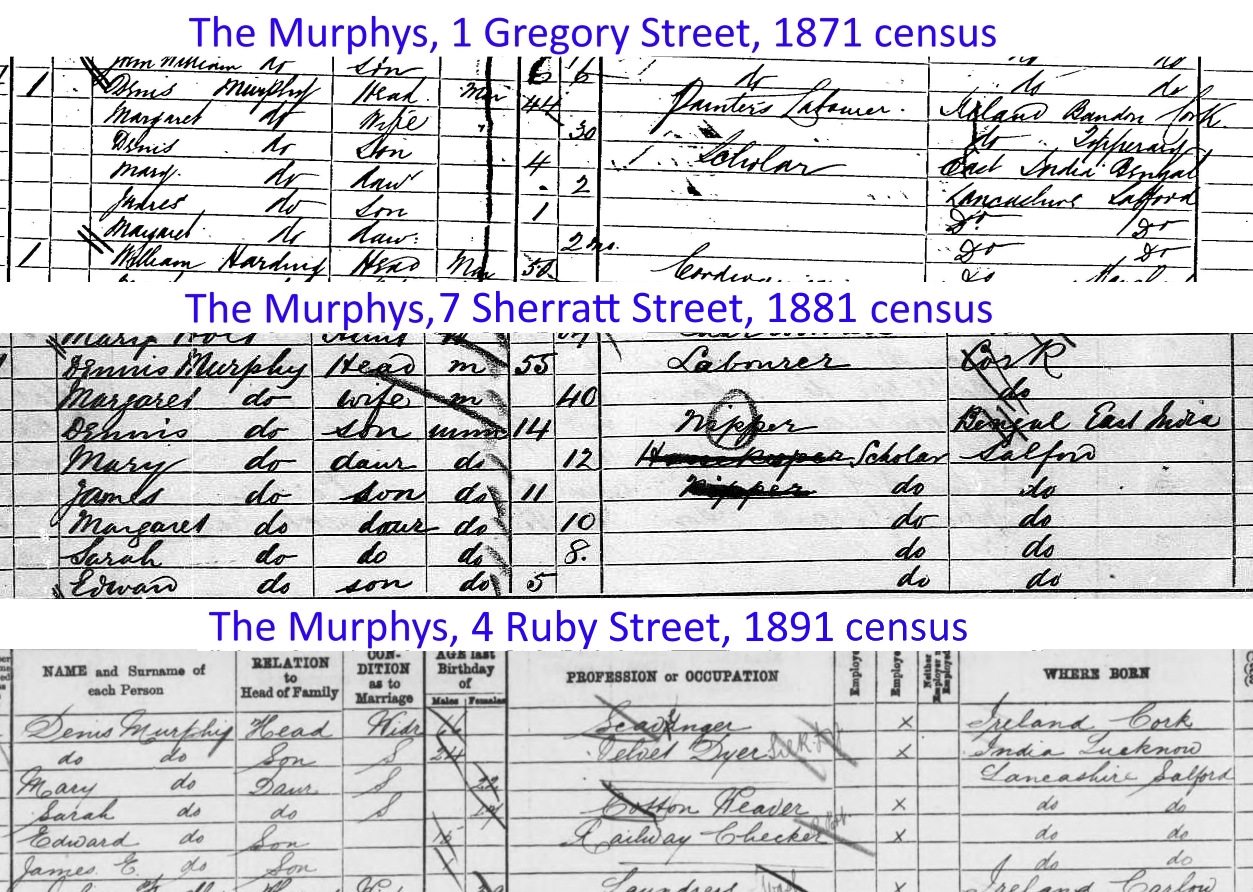 The Murphys, 1 Gregory Street, 1871 census
John William do Son 6 do do do
1 Denis Murphy Head Mar 44 Painters Labourer. Ireland Bandon Cork
Margaret do Wife 30 do Tipperary
Denis do Son 4 Scholar East India Bengal
Mary do daur 2 Lancashire Salford
James do son 1 Do Do
Margaret do daur. 2 mo. Do Do
1 William Harding Head Mar 50
The Murphys, 7 Sherratt Street, 1881 census
Dennis Murphy Head m 55 Labourer Cork
Margaret do wife m 40 do
Dennis do son unm 14 Nipper Bengal East India
Mary do daur do 12 Scholar Salford
James do son do 11 Nipper do do
Margaret do daur do 10 do do
Sarah do do do 8. do do
Edward do son do 5 do do
The Murphys, 4 Ruby Street, 1891 census
NAME and Surname of each Person
RELATION to Head of Family
CON-DITION as to Marriage
AGE last Birthday of
Males Females
PROFESSION or OCCUPATION
WHERE BORN
Denis Murphy Head Widr 66 Scavenger x Ireland Cork
do do Son S 24 Velvet Dyer x India Lucknow
Mary do Daur S 22 Lancashire Salford
Sarah do do S Cotton Weaver x do do
Edward do Son 15 Railway Checker x do do
James E. do Son 1 do do
Laundress x Ireland Carlow